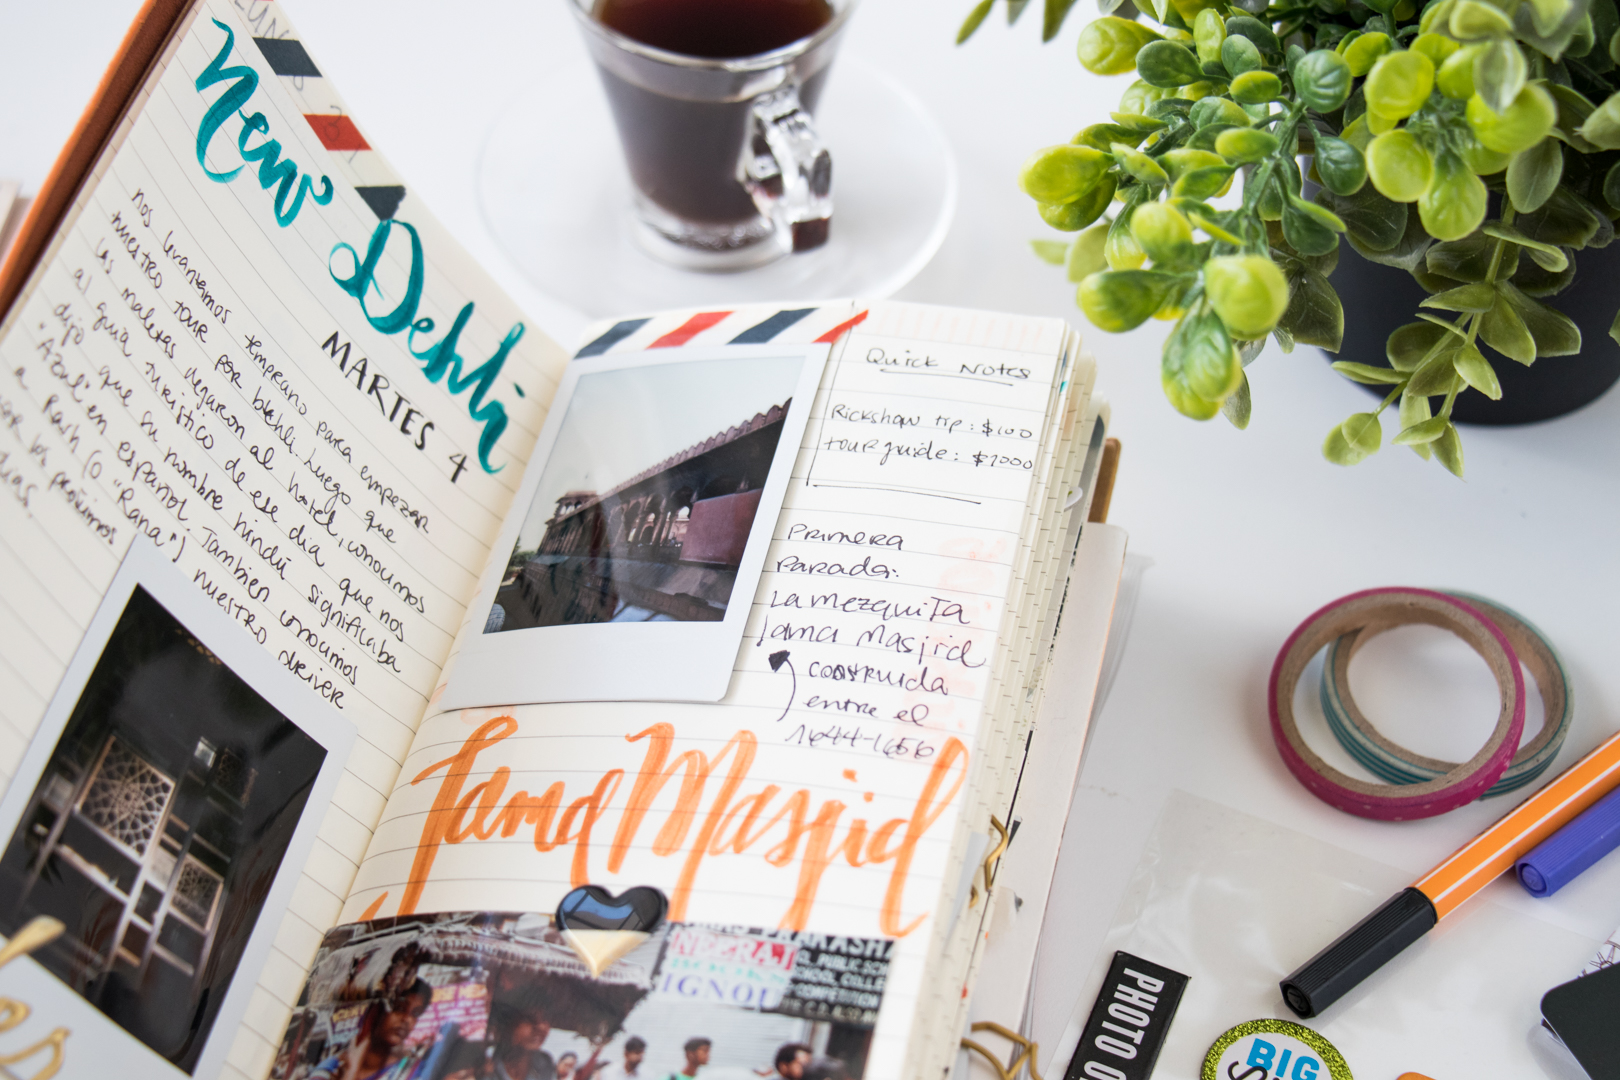 New Dehli
MARTES 4
nos levantamos temprano para empezar
nuestro tour por Dehli. Luego que
las maletas dejaron al hotel, conocimos
al guia turistico de ese dia que nos
dijo que su nombre hindú significaba
"Azul" en español. Tambien conocimos
a Rash (o "Rana") nuestro driver
por los proximos
dias.
Quick Notes
Rickshaw tip: $100
tour guide: $1000
Primera
Parada:
La mezquita
Jama Masjid
construida
entre el
1644-1656
Jama Masjid
PRAKASH
NEERAJ
BOOKS
IGNOU
PHOTO
BIG